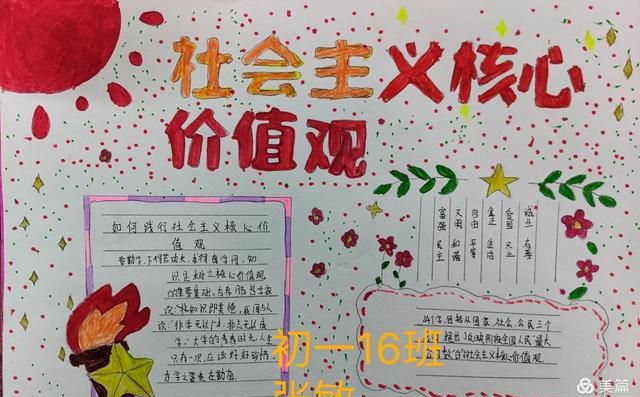 社会主义核心
价值观
如何践行社会主义核心价
值观
要勤学、下得苦功夫,求得真学问,知
识是树立核心价值观
的重要基础,古希腊哲学家
说:“知识即美德,我国古人
说:“非学无以广才,非志无以成
学,大学的青春时光,人生
只有一次,应该好好珍惜
为学之要贵在勤奋
富强 民主
文明 和谐
自由 平等
公正 法治
爱国
诚信 友善
24个字,
社会,公民三个
全国人民“最大
的社会主义核心价值观.
初一16班
张敏
美篇